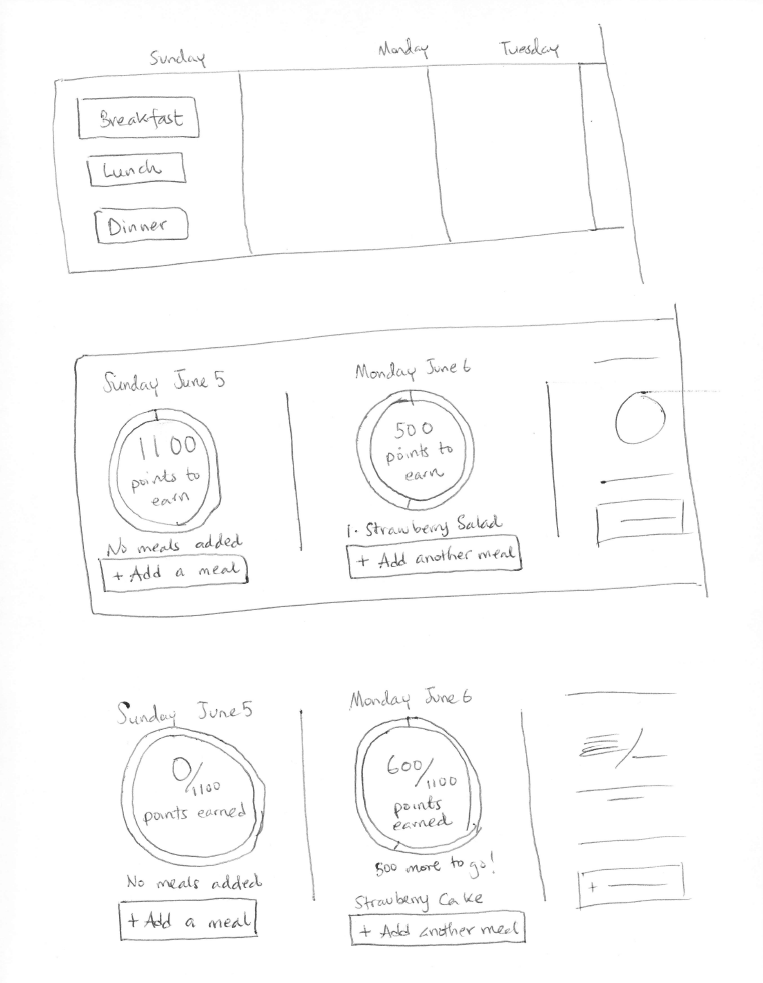 Sunday
Monday
Tuesday
Breakfast
Lunch
Dinner
Sunday June 5
1100
points to
earn
No meals added
+ Add a meal
Monday June 6
500
points to
earn
1. Strawberry Salad
+ Add another meal
Sunday June 5
0/1100
points earned
No meals added
+ Add a meal
Monday June 6
600/1100
points
earned
500 more to go!
Strawberry Cake
+ Add another meal
+